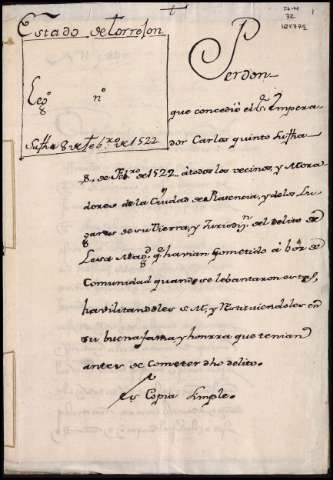 Estado de Torrejon
Leg.º n.º
Su fha 8 de feb.ro de 1522
Perdon
que concedió el S.r Empera
dor Carlos quinto su fha
8. de Feb.ro de 1522 a todos los vecinos, y Mora
dores de la Ciudad de Palencia, y de los Lu
gares de su tierra, y Jurisdi.n del delito de
Lesa Mag.d q.e havian Cometido á bóz de
Comunidad quando se lebantaron en
havilitandoles S. M. y Restituiendoles en
su buena fama y honrra que tenian
antes de Cometer dho delito.
Es Copia Simple.